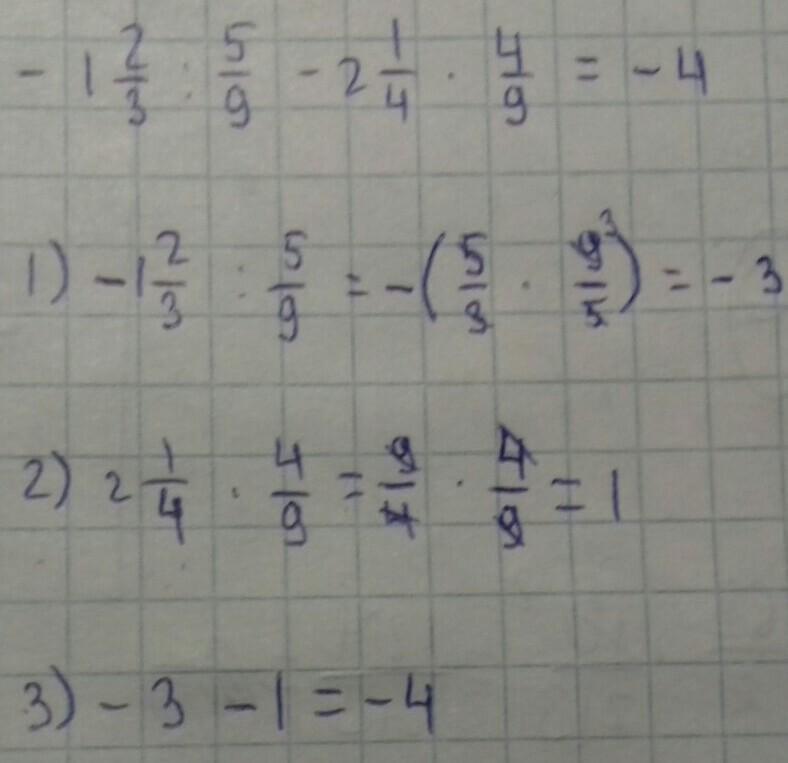 - 1 2/3 : 5/9 - 2 1/4 · 4/9 = - 4
1) - 1 2/3 : 5/9 = - (5/3 · 9³/5) = - 3
2) 2 1/4 · 4/9 = 9/4 · 4/9 = 1
3) - 3 - 1 = - 4